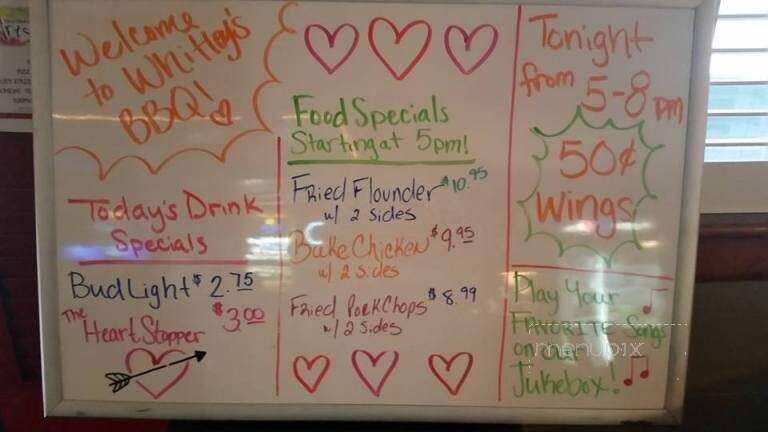 Welcome
to Whitley's
BBQ!
Today's Drink
Specials
Bud Light $2.75
The Heart Stopper $3.00
Food Specials
Starting at 5pm!
Fried Flounder $10.95
w/ 2 sides
Bake Chicken $9.95
w/ 2 sides
Fried PorkChops $8.99
w/ 2 sides
Tonight
from 5-8pm
50¢
Wings
Play Your
FAVORITE Songs
on our
Jukebox!
menupix